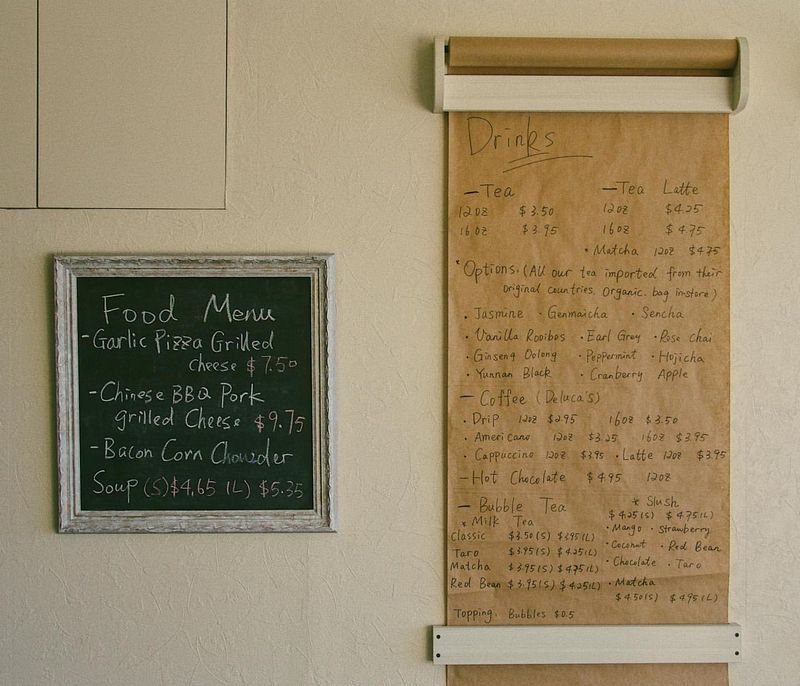 Food Menu
- Garlic Pizza Grilled
cheese $7.50
- Chinese BBQ Pork
grilled Cheese $9.75
- Bacon Corn Chowder
Soup (S) $4.65 (L) $5.35
Drinks
— Tea
12oz $3.50
16oz $3.95
— Tea Latte
12oz $4.25
16oz $4.75
* Matcha 12oz $4.75
* Options. (All our tea imported from their
original countries. Organic. bag in-store)
· Jasmine · Genmaicha · Sencha
· Vanilla Rooibos · Earl Grey · Rose chai
· Ginseng Oolong · Peppermint · Hojicha
· Yunnan Black · Cranberry Apple
— Coffee (Deluca's)
· Drip 12oz $2.95 16oz $3.50
· Americano 12oz $3.25 16oz $3.95
· Cappuccino 12oz $3.95 · Latte 12oz $3.95
— Hot Chocolate $4.95 12oz
— Bubble Tea
* Milk Tea
Classic $3.50(S) $3.95(L)
Taro $3.95(S) $4.25(L)
Matcha $3.95(S) $4.75(L)
Red Bean $3.95(S) $4.25(L)
Topping. Bubbles $0.5
* Slush
$4.25(S) $4.75(L)
· Mango · Strawberry
· Coconut · Red Bean
· Chocolate · Taro
· Matcha
$4.50(S) $4.95(L)